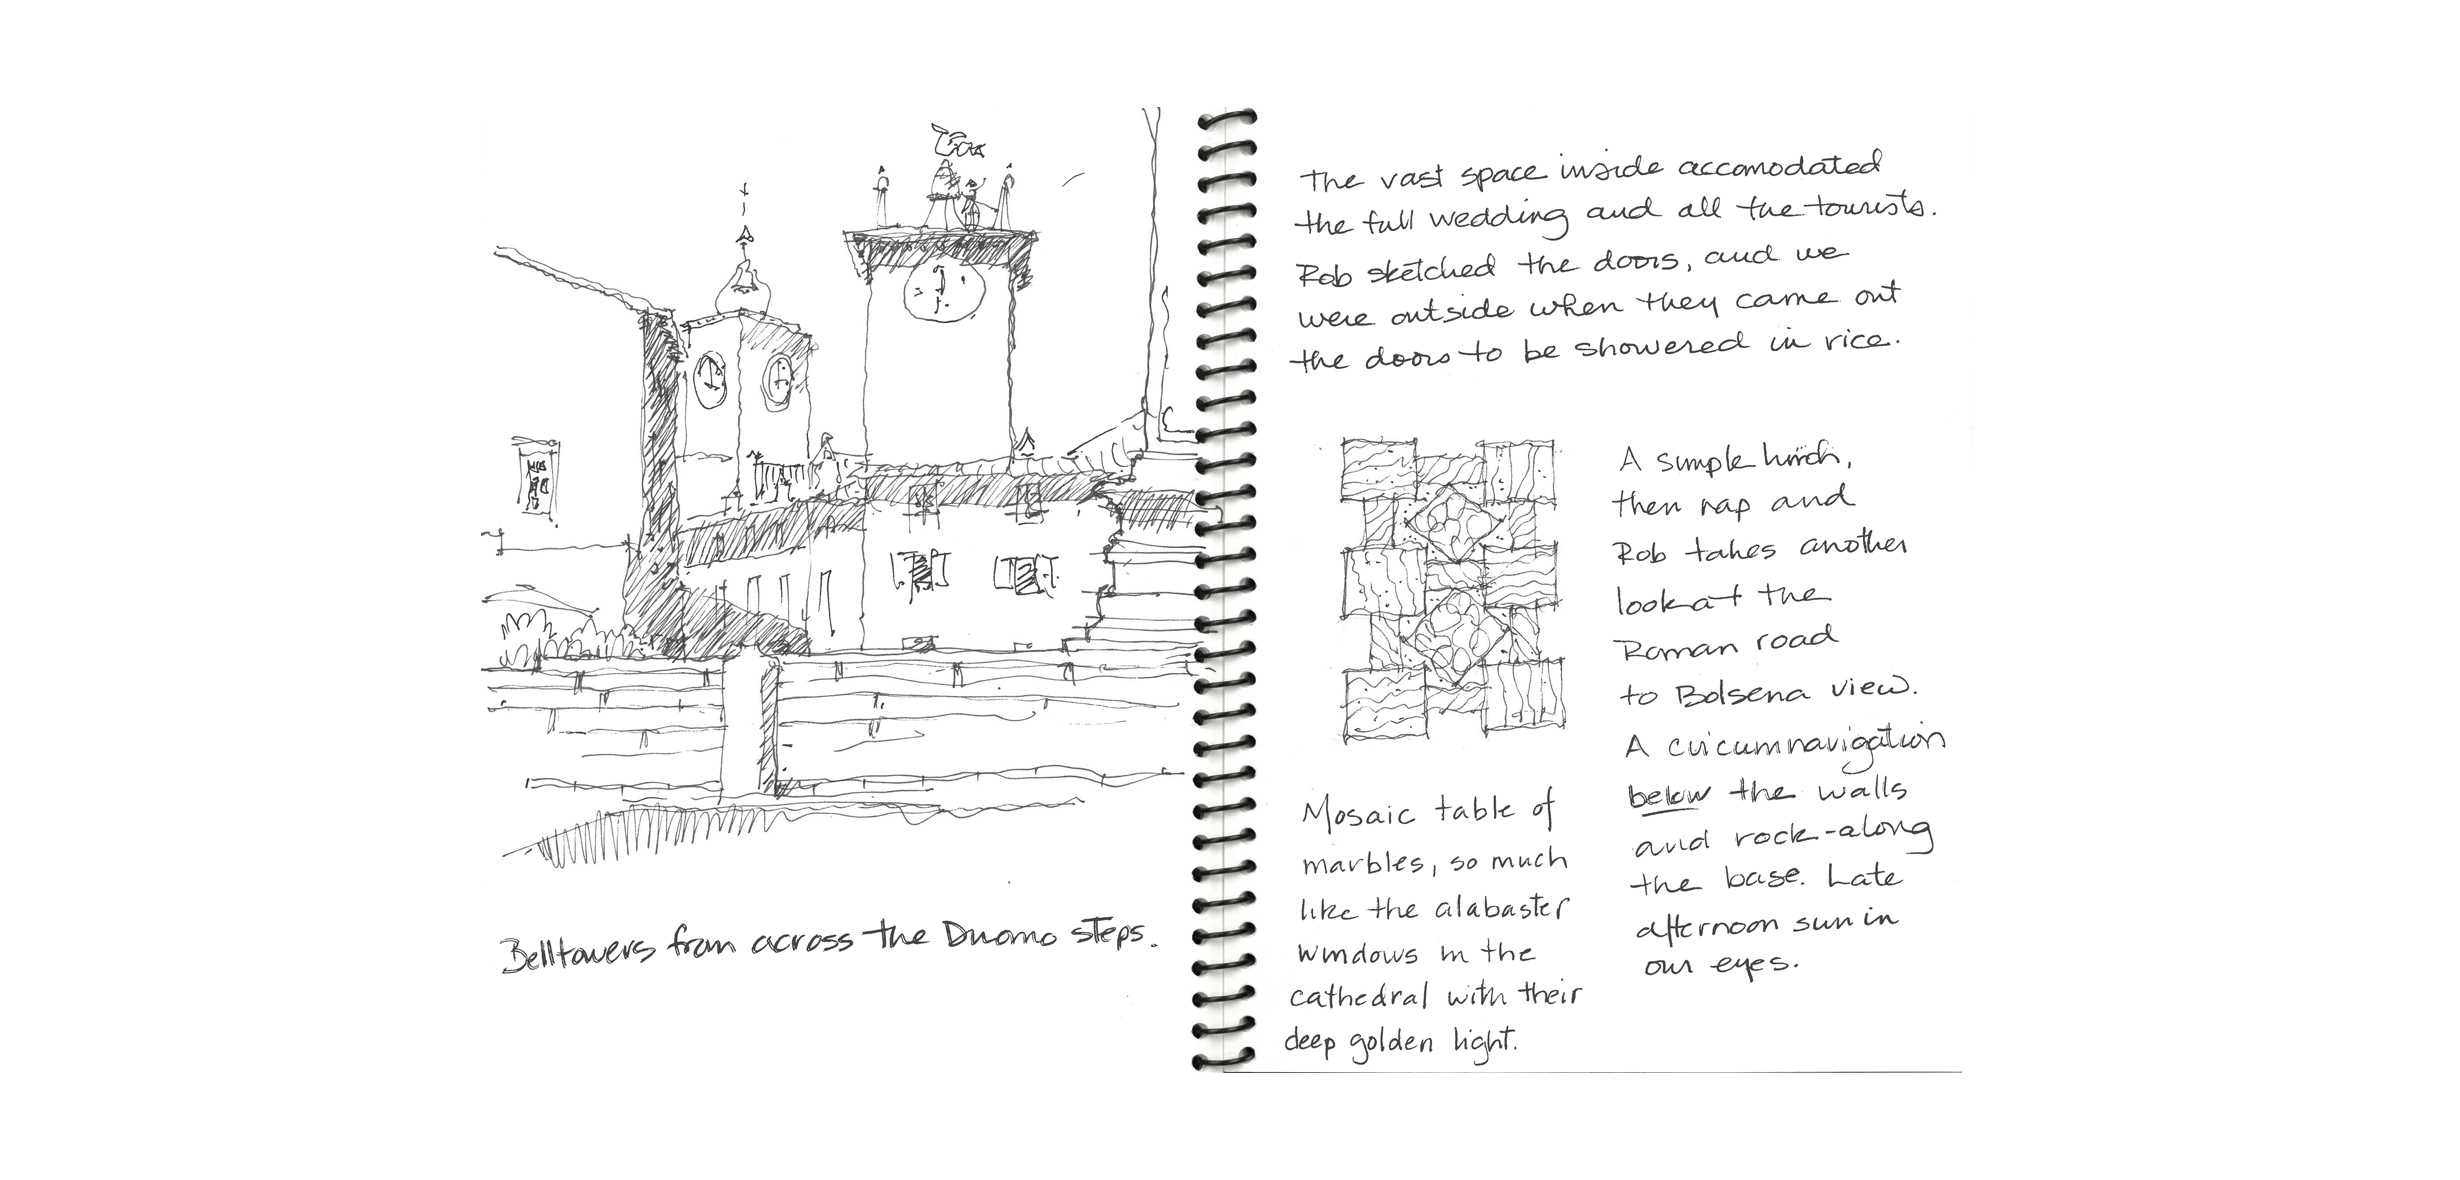 Belltowers from across the Duomo steps.
The vast space inside accomodated
the full wedding and all the tourists.
Rob sketched the doors, and we
were outside when they came out
the doors to be showered in rice.
A simple lunch,
then nap and
Rob takes another
look at the
Roman road
to Bolsena view.
A circumnavigation
below the walls
and rock-along
the base. Late
afternoon sun in
our eyes.
Mosaic table of
marbles, so much
like the alabaster
windows in the
cathedral with their
deep golden light.